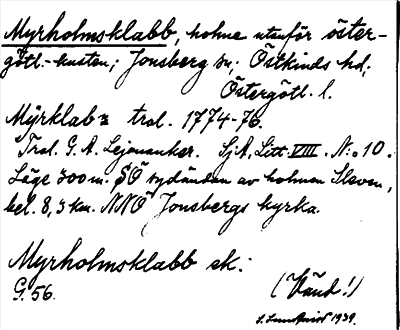 Myrholmsklabb, holme utanför öster-
götl.-kusten; Jonsberg sn; Östkinds hd;
Östergötl. l.
Myrklab= trol. 1774-76.
Trol. G. A. Lejonanker. SjK, Litt. VIII. N:o 10.
Läge 300 m. SÖ sydändan av holmen Sleven,
bel. 8,3 km. NNÖ Jonsbergs kyrka.
Myrholmsklabb ek.
G. 56.
(Vänd!)
1939.